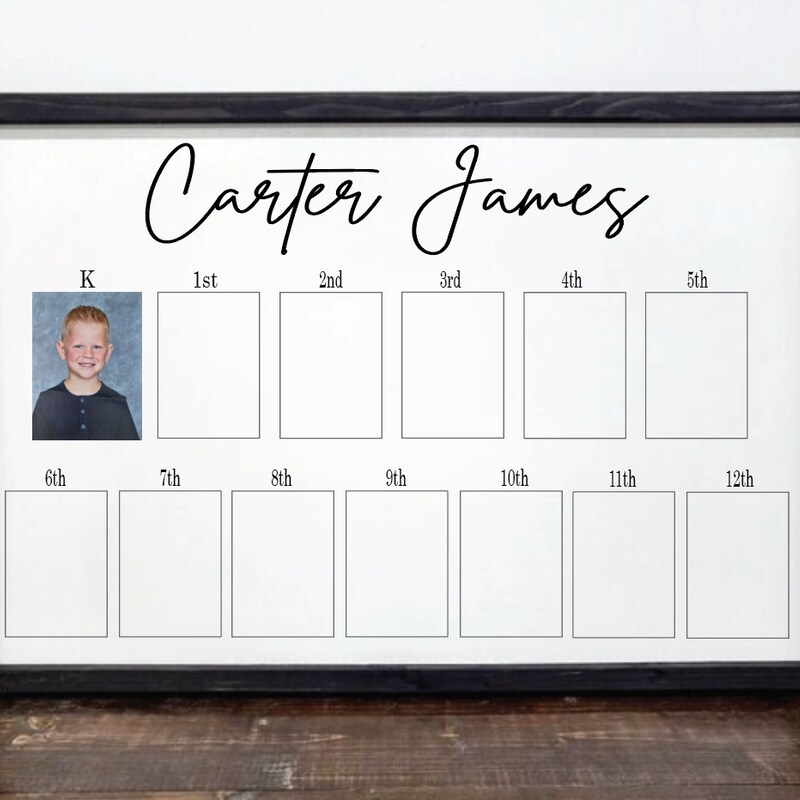 Carter James
K 1st 2nd 3rd 4th 5th
6th 7th 8th 9th 10th 11th 12th